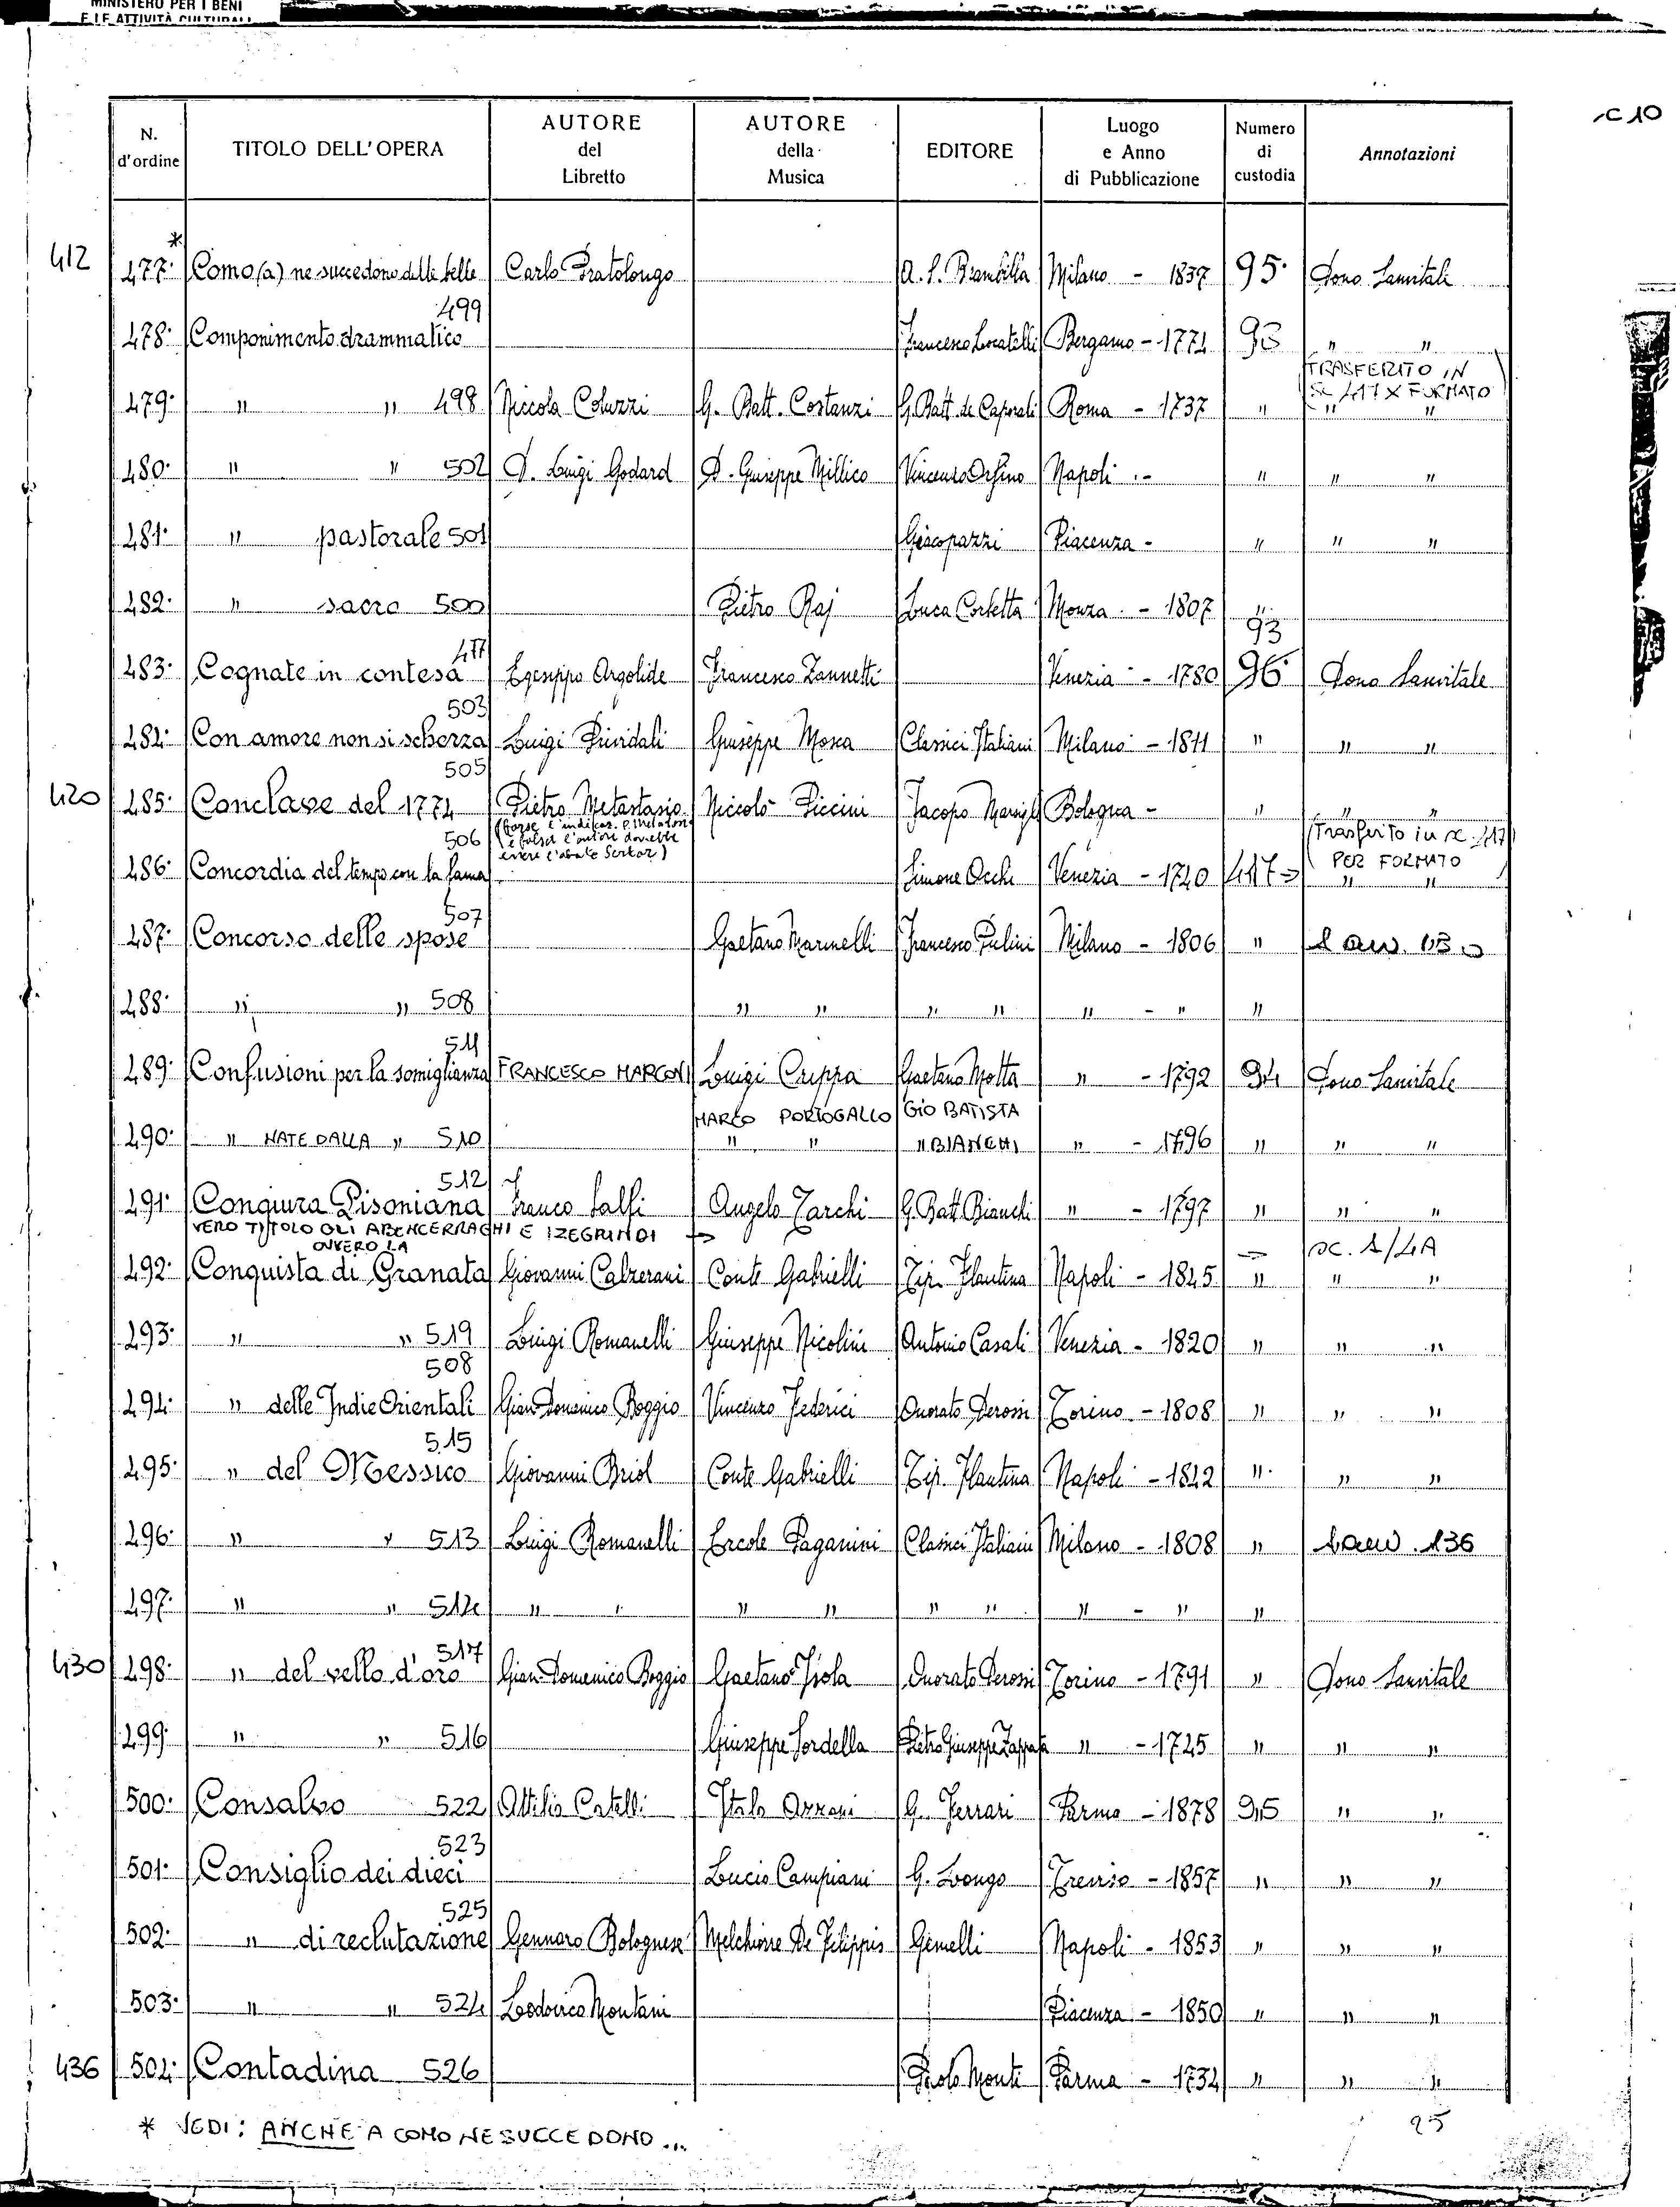 MINISTERO PER I BENI
E LE ATTIVITÀ CULTURALI
C 10
N. d'ordine | TITOLO DELL'OPERA | AUTORE del Libretto | AUTORE della Musica | EDITORE | Luogo e Anno di Pubblicazione | Numero di custodia | Annotazioni
*
412 477. Como (a) ne succedono delle belle Carlo Pratolongo A. S. Brambilla Milano - 1837 95. Dono Sanvitale
499
478. Componimento drammatico Francesco Locatelli Bergamo - 1774 93 " "
TRASFERITO IN
SC 417 X FORMATO
479. " " 498 Niccola Coluzzi G. Batt. Costanzi G. Batt. de Caporali Roma - 1737 " " "
480. " " 502 D. Luigi Godard D. Giuseppe Millico Vincenzo Orsino Napoli - " " "
481. " pastorale 501 Giacopazzi Piacenza - " " "
482. " sacro 500 Pietro Raj Luca Corbetta Monza - 1807 "
477 93
483. Cognate in contesa Egesippo Argolide Francesco Zannetti Venezia - 1780 96. Dono Sanvitale
503
484. Con amore non si scherza Luigi Prividali Giuseppe Mosca Classici Italiani Milano - 1811 " " "
505
420 485. Conclave del 1774 Pietro Metastasio Niccolò Piccini Jacopo Marsigli Bologna - " " "
(forse l'indicaz. P. Metastasio
506 è falsa l'autore dovrebbe (Trasferito in sc. 417
essere l'abate Sertor) PER FORMATO
486. Concordia del tempo con la fama Simone Occhi Venezia - 1740 417 " "
507
487. Concorso delle spose Gaetano Marinelli Francesco Pulini Milano - 1806 "
488. " " 508 " " " " " - " "
511
489. Confusioni per la somiglianza FRANCESCO MARCONI Luigi Caruso Gaetano Motta " - 1792 94 Dono Sanvitale
MARCO PORTOGALLO GIO BATISTA
490. " NATE DALLA " 510 " " " BIANCHI " - 1796 " " "
512
491. Congiura Pisoniana Franco Salfi Angelo Tarchi G. Batt. Bianchi " - 1797 " " "
VERO TITOLO GLI ABENCERRAGHI E IZEGRINDI
OVVERO LA sc. 1/4A
492. Conquista di Granata Giovanni Calzerani Conte Gabrielli Tip. Flautina Napoli - 1845 " " "
493. " " 519 Luigi Romanelli Giuseppe Nicolini Antonio Casali Venezia - 1820 " " "
508
494. " delle Indie Orientali Gian Domenico Boggio Vincenzo Federici Onorato Derossi Torino - 1808 " " "
515
495. " del Messico Giovanni Briol Conte Gabrielli Tip. Flautina Napoli - 1842 " " "
496. " " 513 Luigi Romanelli Ercole Paganini Classici Italiani Milano - 1808 "
497. " " 514 " " " " " " " - " "
517
430 498. " del vello d'oro Gian Domenico Boggio Gaetano Isola Onorato Derossi Torino - 1791 " Dono Sanvitale
499. " " 516 Giuseppe Sordella Pietro Giuseppe Zappata " - 1745 " " "
500. Consalvo 522 Attilio Catelli Italo Azzoni G. Ferrari Parma - 1878 95 " "
523
501. Consiglio dei dieci Lucio Campiani G. Longo Treviso - 1857 " " "
525
502. " di reclutazione Gennaro Bolognese Melchiorre De Filippis Gemelli Napoli - 1853 " " "
503. " " 524 Lodovico Montani Piacenza - 1850 " " "
436 504. Contadina 526 Paolo Monti Parma - 1734 " " "
* VEDI: ANCHE A COMO NE SUCCEDONO ...
25